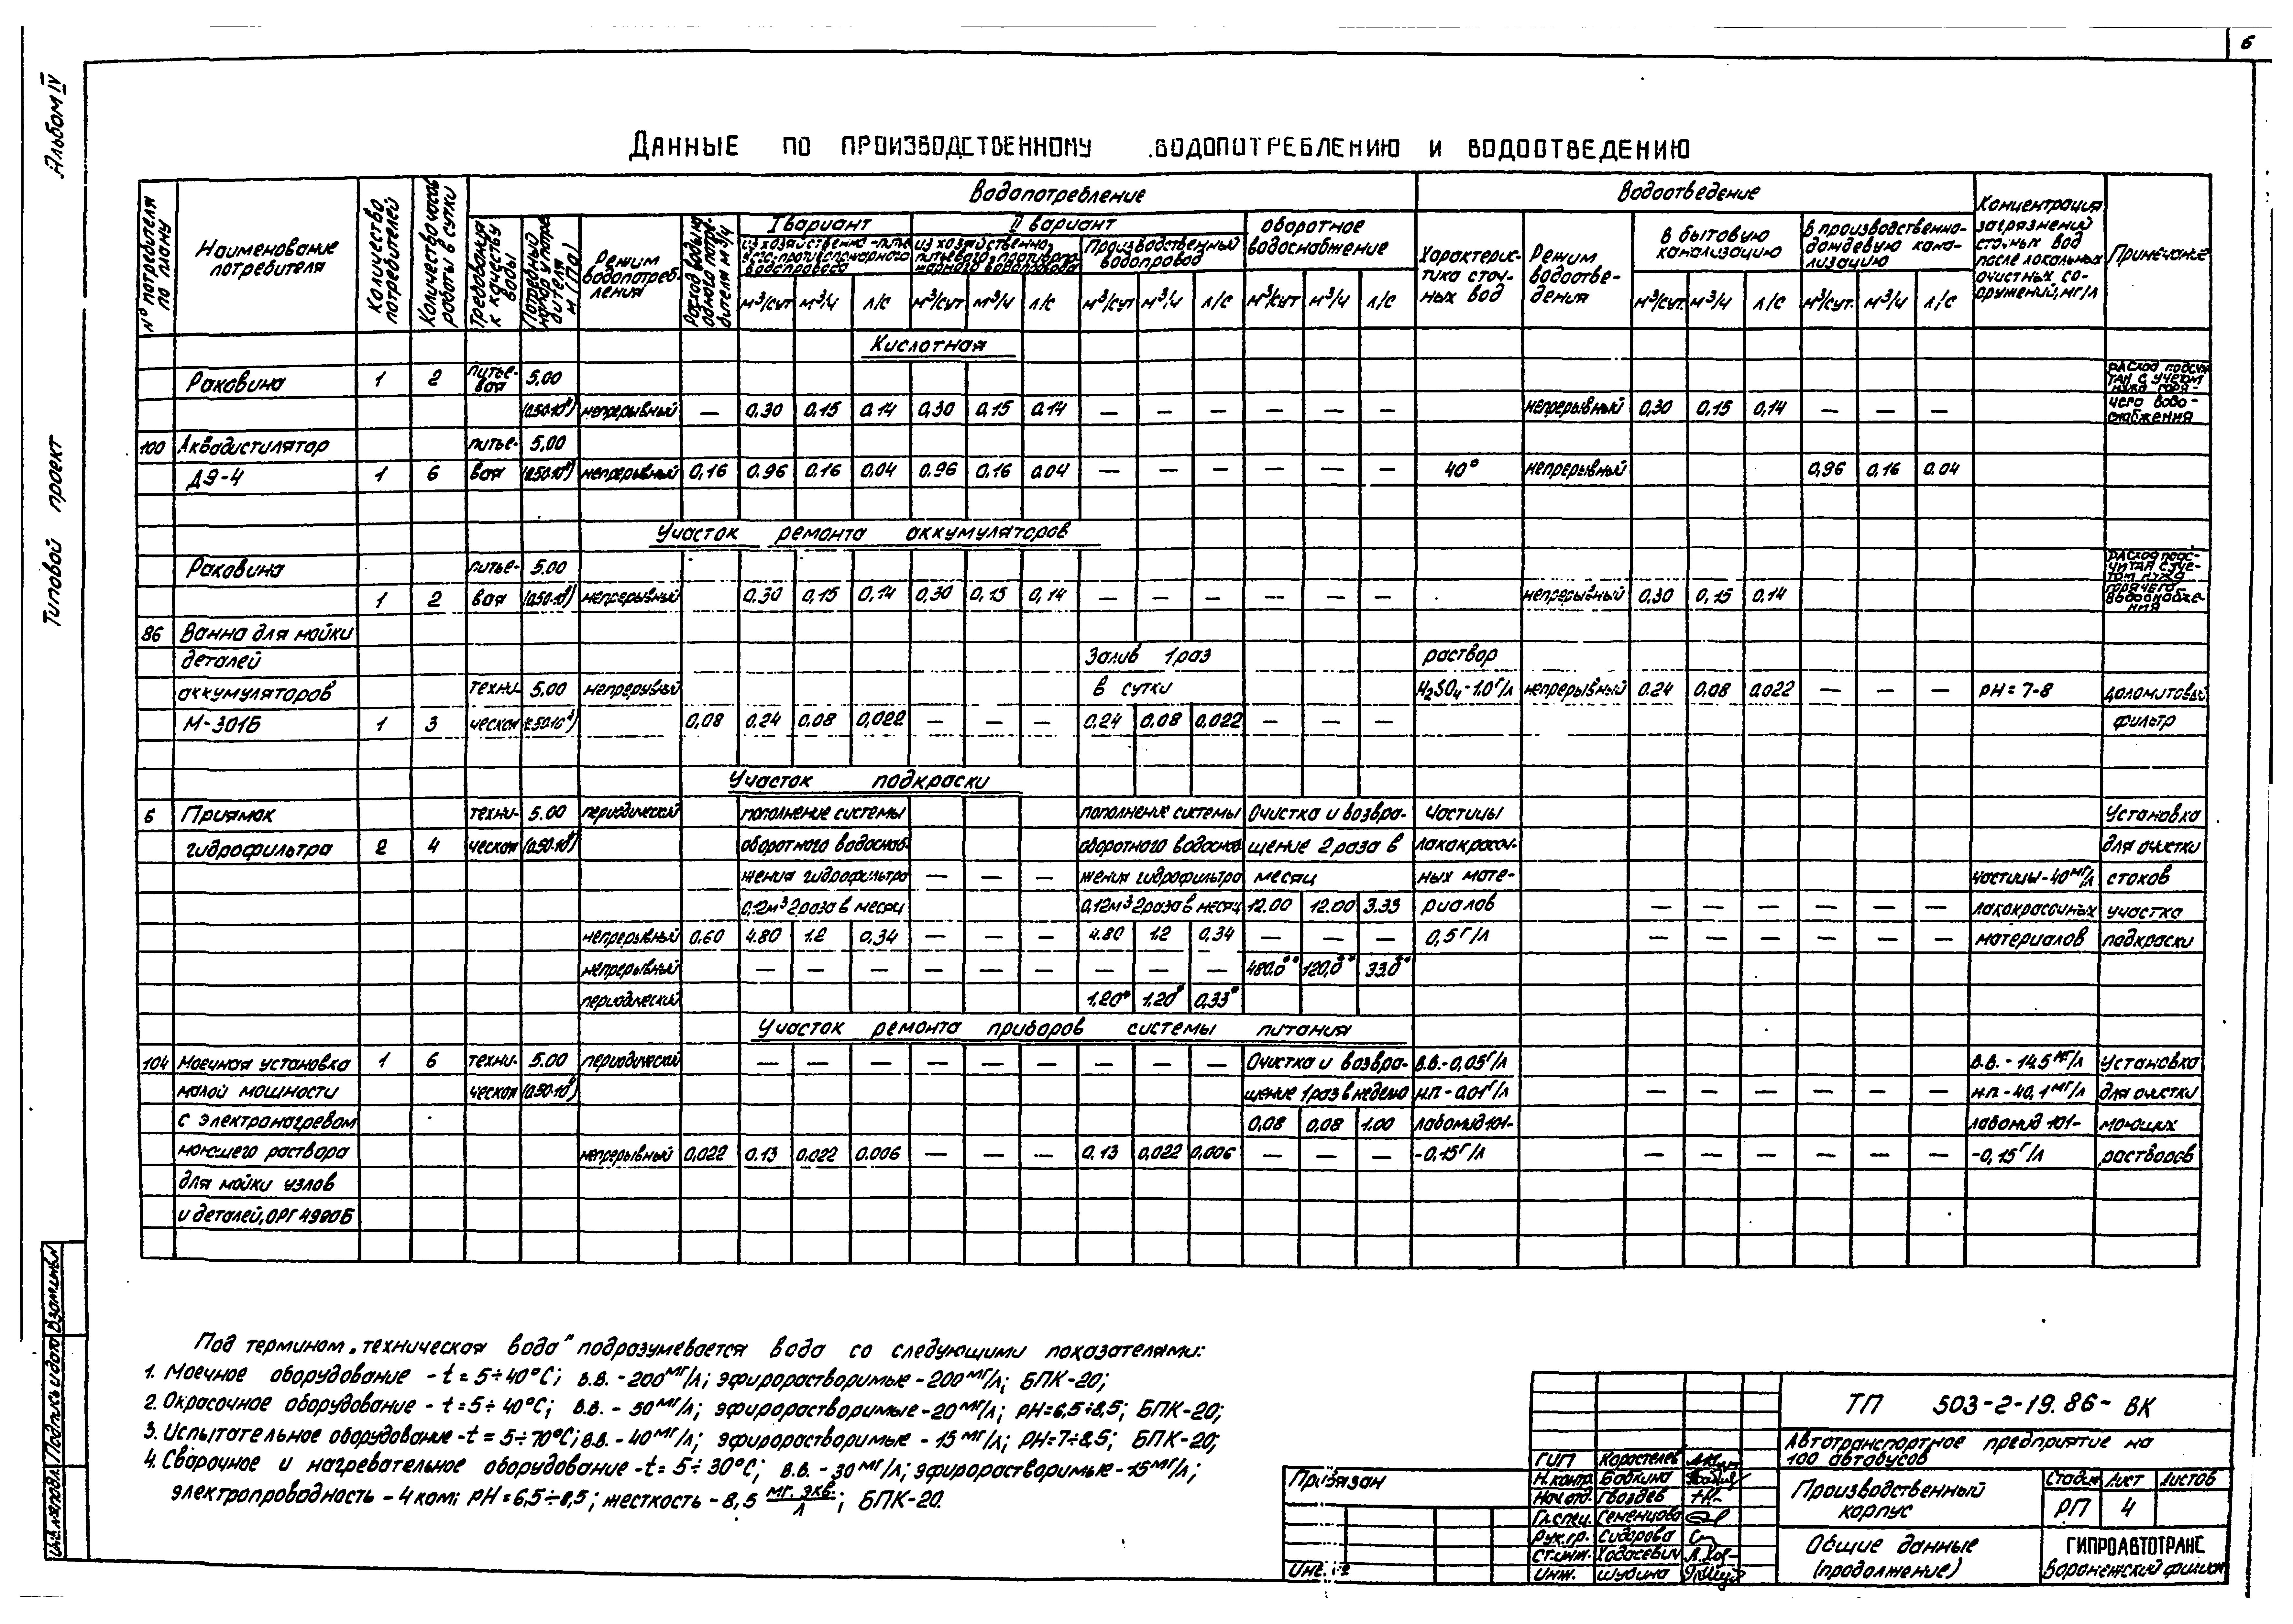 6
Альбом IV
Типовой проект
Данные по производственному водопотреблению и водоотведению
№ потребителя по плану
Наименование потребителя
Количество потребителей
Количество часов работы в сутки
Водопотребление
Водоотведение
Концентрация загрязнений сточных вод после локальных очистных сооружений, мг/л
Примечание
Требования к качеству воды
Режим водопотребления
I вариант
II вариант
оборотное водоснабжение
из хозяйственно-питьевого, противопожарного водопровода
Производственный водопровод
Характеристика сточных вод
Режим водоотведения
В бытовую канализацию
В производственно-дождевую канализацию
м³/сут м³/ч л/с м³/сут м³/ч л/с м³/сут м³/ч л/с м³/сут м³/ч л/с м³/сут. м³/ч л/с м³/сут. м³/ч л/с
Кислотная
Раковина 1 2 питьевая 5,00
(0,50·10⁴) непрерывный — 0,30 0,15 0,14 0,30 0,15 0,14 — — — — — — непрерывный 0,30 0,15 0,14 — — —
расход подсчитан с учетом нужд горячего водоснабжения
100 Аквадистилятор питье- 5,00
ДЭ-4 1 6 вая (0,50·10⁴) непрерывный 0,16 0,96 0,16 0,04 0,96 0,16 0,04 — — — — — — 40° непрерывный 0,96 0,16 0.04
Участок ремонта аккумуляторов
Раковина питье- 5.00
1 2 вая (0,50·10⁴) непрерывный 0,30 0,15 0,14 0,30 0,15 0,14 — — — — — — непрерывный 0,30 0,15 0,14
расход подсчитан с учетом нужд горячего водоснабжения
86 Ванна для мойки
деталей Залив 1 раз раствор
аккумуляторов техни- 5.00 непрерывный в сутки H₂SO₄-1.0 г/л непрерывный 0.24 0.08 0.022 — — — рН=7-8 доломитовый
М-301Б 1 3 ческая 0,08 0.24 0,08 0,022 — — — 0.24 0,08 0,022 — — — фильтр
Участок подкраски
6 Приямок техни- 5.00 периодический пополнение системы пополнение системы Очистка и возвра- Частицы Установка
гидрофильтра 2 4 ческая (0,50·10⁴) оборотного водоснаб- оборотного водоснаб- щение 2 раза в лакокрасоч- для очистки
жения гидрофильтра — — — жения гидрофильтра месяц ных мате- частицы-40 мг/л стоков
0,12м³ 2 раза в месяц 0,12м³ 2 раза в месяц 12.00 12.00 3.33 риалов — — — — — — лакокрасочных участка
непрерывный 0.60 4.80 1.2 0,34 — — — 4.80 1.2 0,34 — — — 0,5 г/л — — — — — — материалов подкраски
непрерывный — — — — — — — — — 480.0** 120,0** 33.0**
периодический 1.20* 1.20* 0,33*
Участок ремонта приборов системы питания
104 Моечная установка 1 6 техни- 5.00 периодический — — — — — — — — — Очистка и возвра- в.в.-0,05 г/л в.в.-14.5 мг/л Установка
малой мощности ческая (0.50·10⁴) щение 1 раз в неделю н.п-0.01 г/л — — — — — — н.п.-40,1 мг/л для очистки
с электронагревом 0,08 0,08 1.00 лабомид 101- лабомид 101- моющих
моющего раствора непрерывный 0,022 0.13 0.022 0.006 — — — 0,13 0,022 0,006 — — — -0.15 г/л — — — — — — -0,15 г/л растворов
для мойки узлов
и деталей, ОРГ 4990Б
Под термином „техническая вода" подразумевается вода со следующими показателями:
1. Моечное оборудование - t = 5÷40°С; в.в. -200 мг/л; эфирорастворимые -200 мг/л; БПК-20;
2. Окрасочное оборудование - t = 5÷40°С; в.в. - 50 мг/л; эфирорастворимые -20 мг/л; рН=6,5÷8,5; БПК-20;
3. Испытательное оборудование - t = 5÷70°С; в.в. - 40 мг/л; эфирорастворимые - 15 мг/л; рН=7÷8,5; БПК-20;
4. Сварочное и нагревательное оборудование - t = 5÷30°С; в.в. - 30 мг/л; эфирорастворимые -15 мг/л;
электропроводность - 4 ком; рН=6,5÷8,5; жесткость - 8,5 мг. экв./л; БПК-20.
Подпись и дата
Привязан
Инв. №
ГИП Коростелев
Н.контр. Бабкина
Нач.отд. Гвоздев
Гл.спец. Семенцова
Рук.гр. Сидорова
Ст.инж. Ходасевич
Инж. Шубина
ТП 503-2-19.86- ВК
Автотранспортное предприятие на
100 автобусов
Производственный
корпус
Стадия Лист Листов
РП 4
Общие данные
(продолжение)
ГИПРОАВТОТРАНС
Воронежский филиал